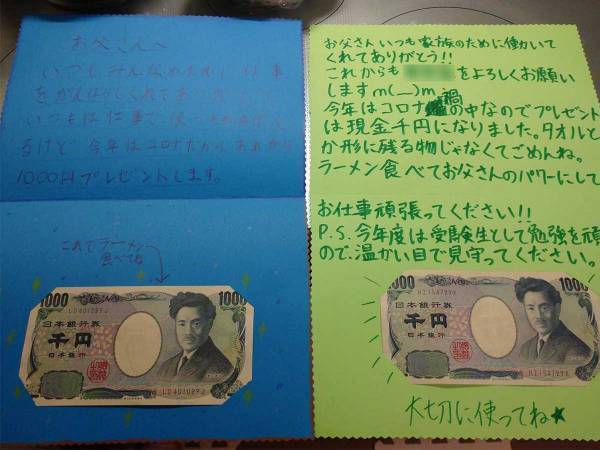 お父さんへ
いつもみんなのために仕事
をがんばってくれてありがとう
いつもは
るけど 今年はコロナだから お札から
1000円プレゼントします。
これでラーメン
食べてね
1000
1000
日本銀行券
千円
日本銀行
1000
お父さんいつも家族のために働いて
くれてありがとう!!
これからも をよろしくお願い
しますm(__)m
今年はコロナ禍の中なのでプレゼント
は現金千円になりました。タオルと
か形に残る物じゃなくてごめんね。
ラーメン食べてお父さんのパワーにして
お仕事頑張ってください!!
P.S.今年度は受験生として勉強を頑
ので、温かい目で見守ってください。
1000
1000
日本銀行券
千円
日本銀行
1000
大切に使ってね★